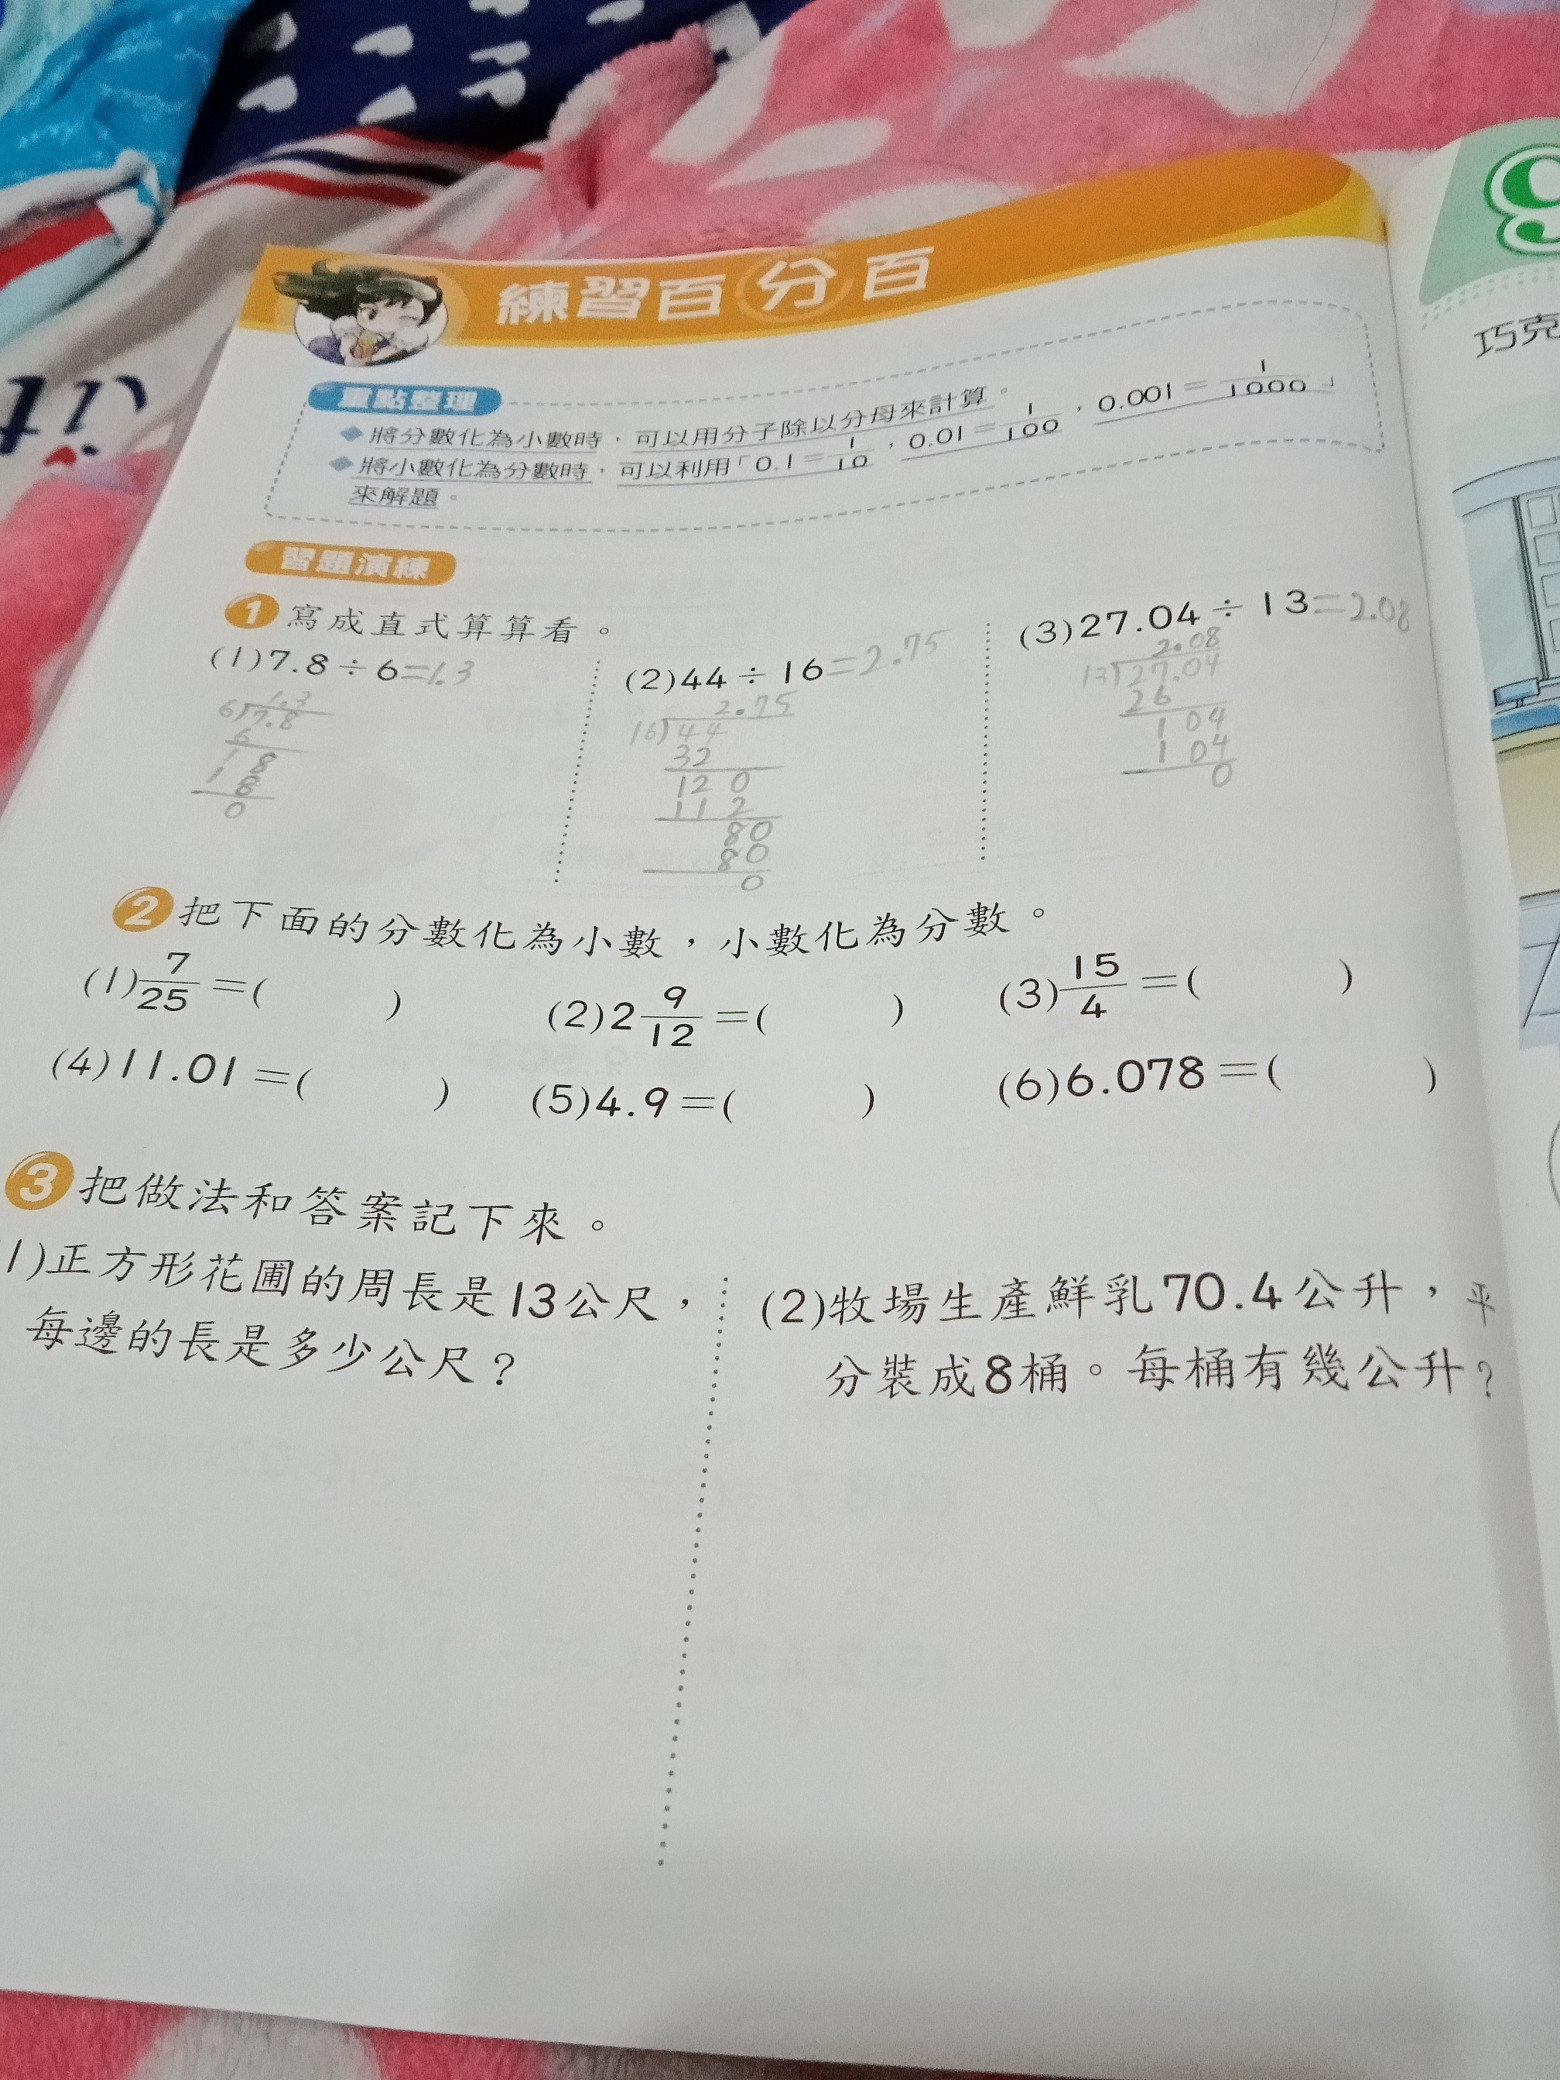 練習百分百
9
巧克
重點整理
◆將分數化為小數時，可以用分子除以分母來計算。
◆將小數化為分數時，可以利用「0.1＝1/10，0.01＝1/100，0.001＝1/1000」
來解題。
習題演練
1 寫成直式算算看。
(1)7.8÷6=1.3
1.3
6)7.8
6
18
18
0
(2)44÷16=2.75
2.75
16)44
32
120
112
80
80
0
(3)27.04÷13=2.08
2.08
13)27.04
26
104
104
0
2 把下面的分數化為小數，小數化為分數。
(1)7/25＝( ) (2)2 9/12＝( ) (3)15/4＝( )
(4)11.01＝( ) (5)4.9＝( ) (6)6.078＝( )
3 把做法和答案記下來。
1)正方形花圃的周長是13公尺，
每邊的長是多少公尺？
(2)牧場生產鮮乳70.4公升，平
分裝成8桶。每桶有幾公升？